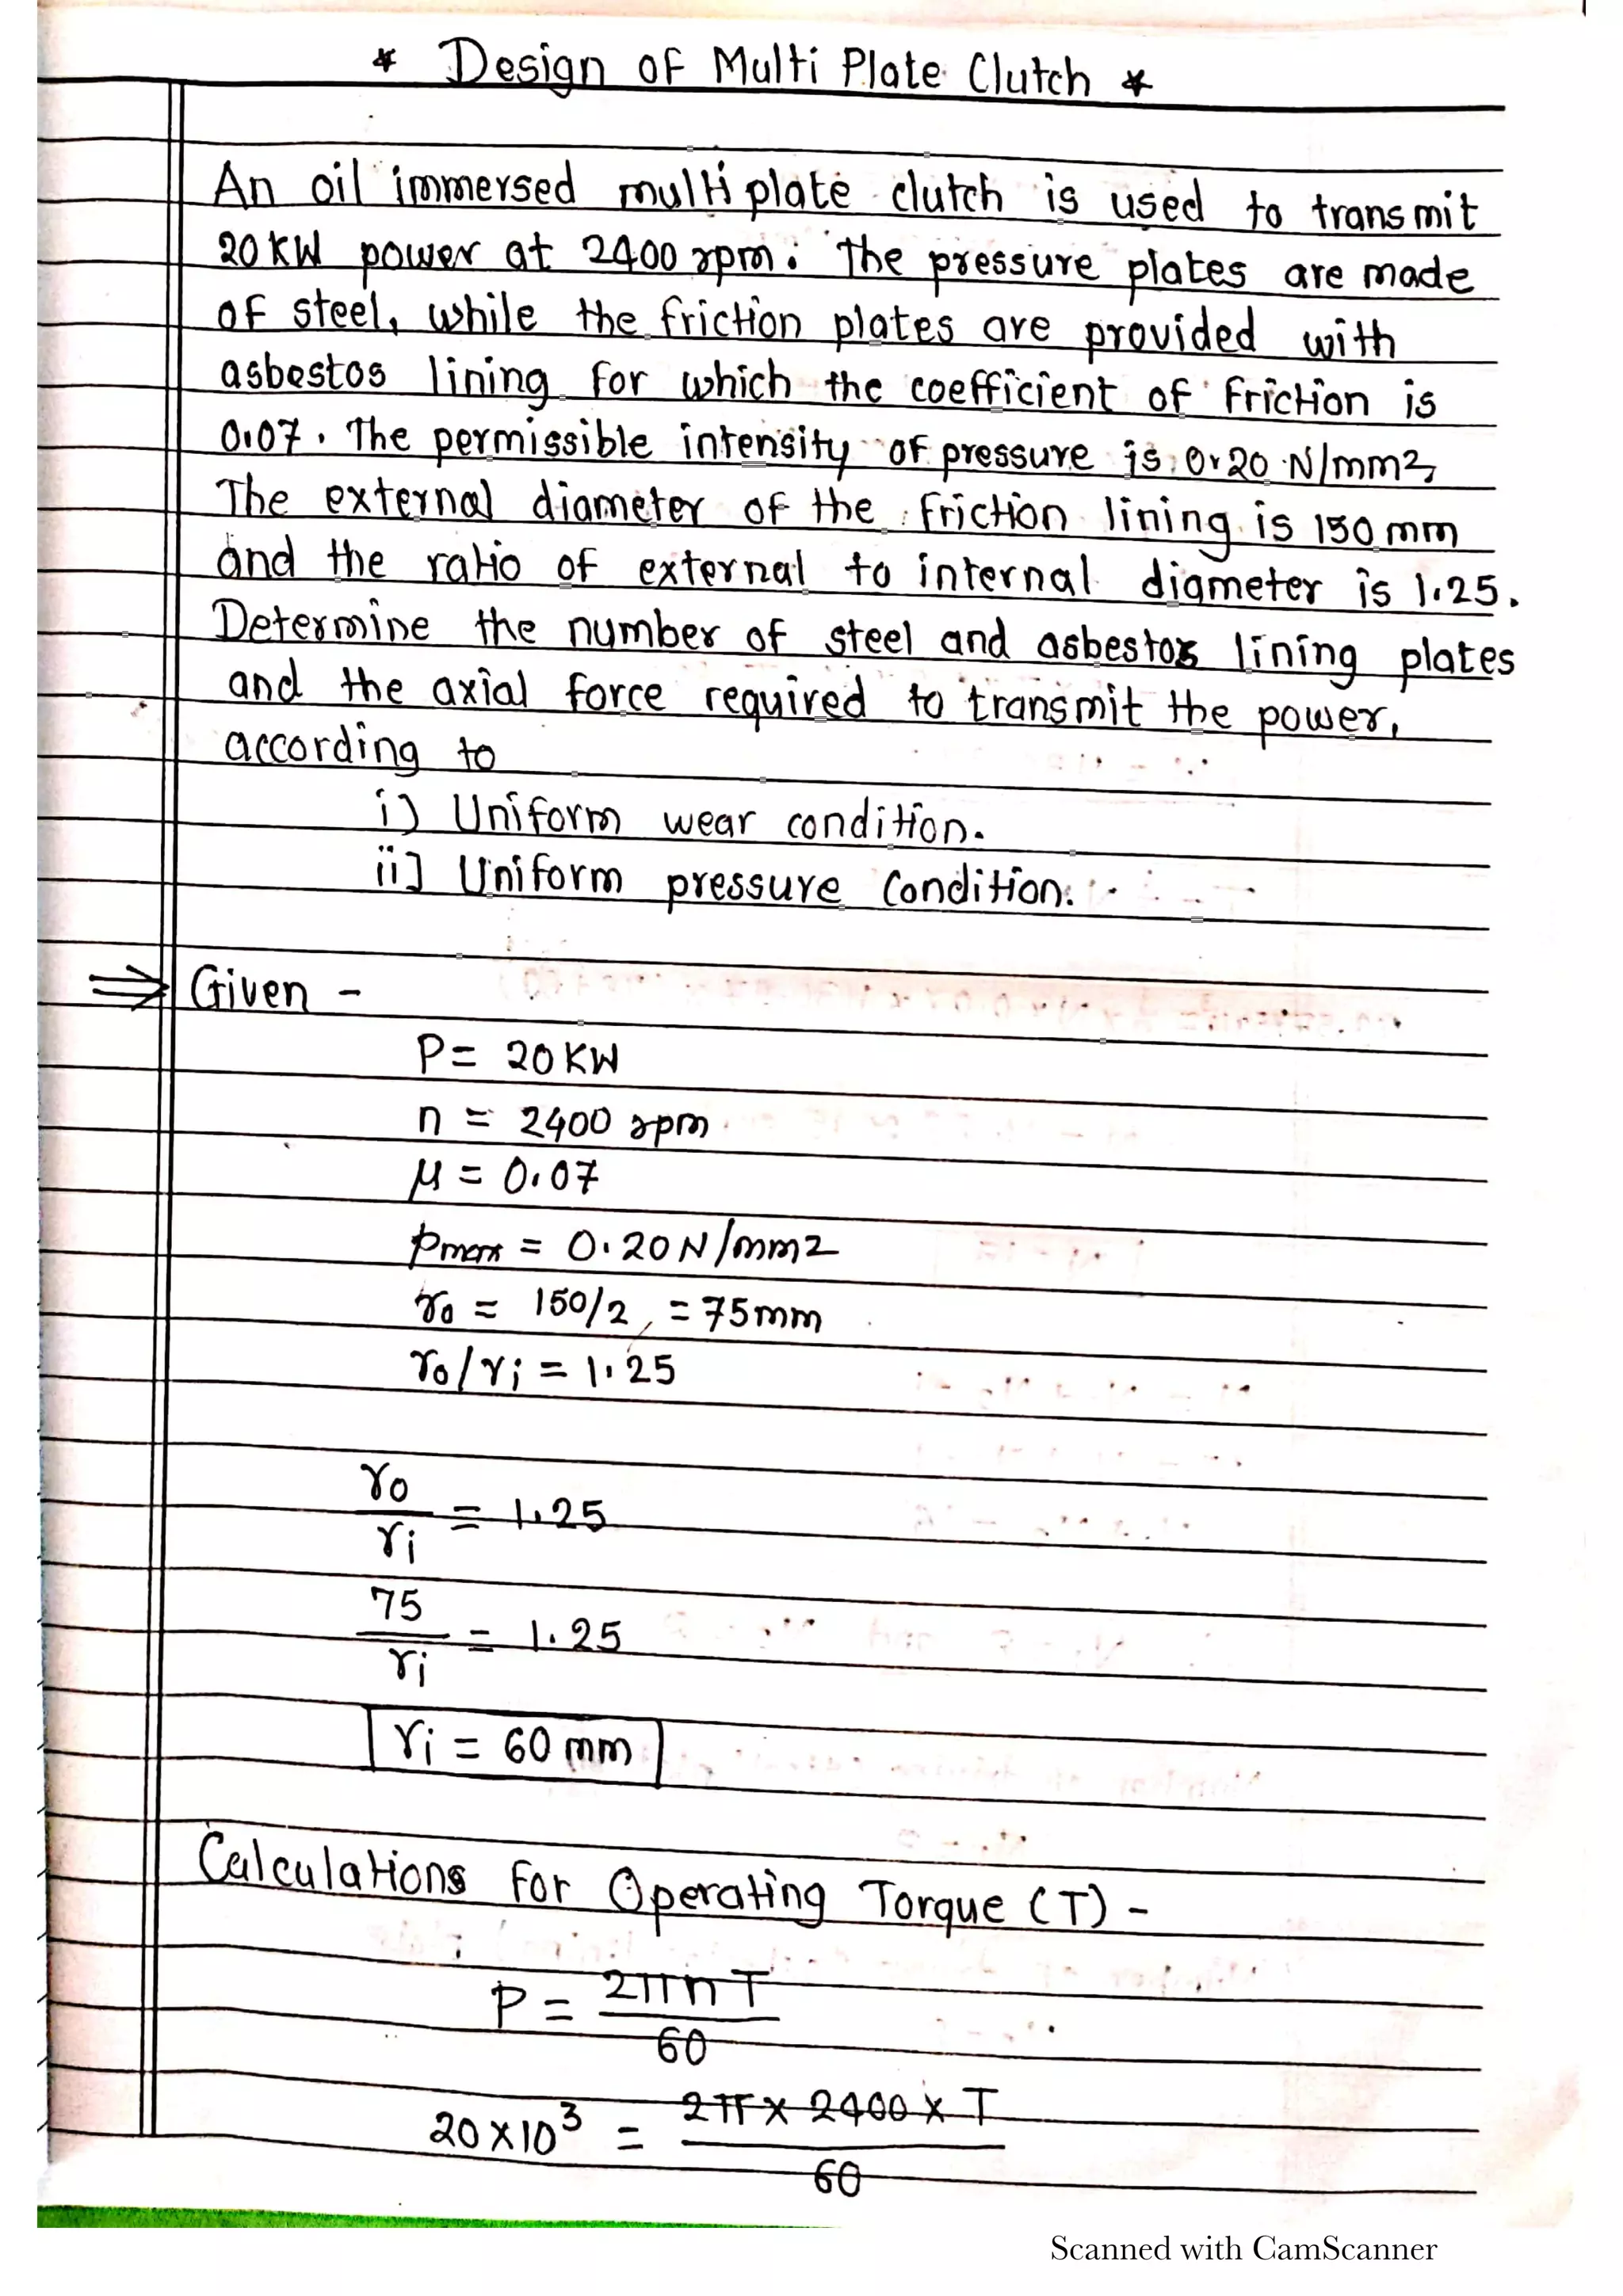 * Design of Multi Plate Clutch *
An oil immersed multi plate clutch is used to transmit
20 KW power at 2400 rpm. The pressure plates are made
of steel, while the friction plates are provided with
asbestos lining for which the coefficient of friction is
0.07. The permissible intensity of pressure is 0.20 N/mm2,
The external diameter of the friction lining is 150 mm
and the ratio of external to internal diameter is 1.25.
Determine the number of steel and asbestos lining plates
and the axial force required to transmit the power,
according to
i) Uniform wear condition.
ii] Uniform pressure Condition.
⇒ Given -
P = 20 KW
n = 2400 rpm
μ = 0.07
pmax = 0.20 N/mm2
ro = 150/2, = 75mm
ro/ri = 1.25
ro/ri = 1.25
75/ri = 1.25
ri = 60 mm
Calculations For Operating Torque (T) -
P = 2πnT/60
20×10³ = 2π × 2400 × T/60
Scanned with CamScanner